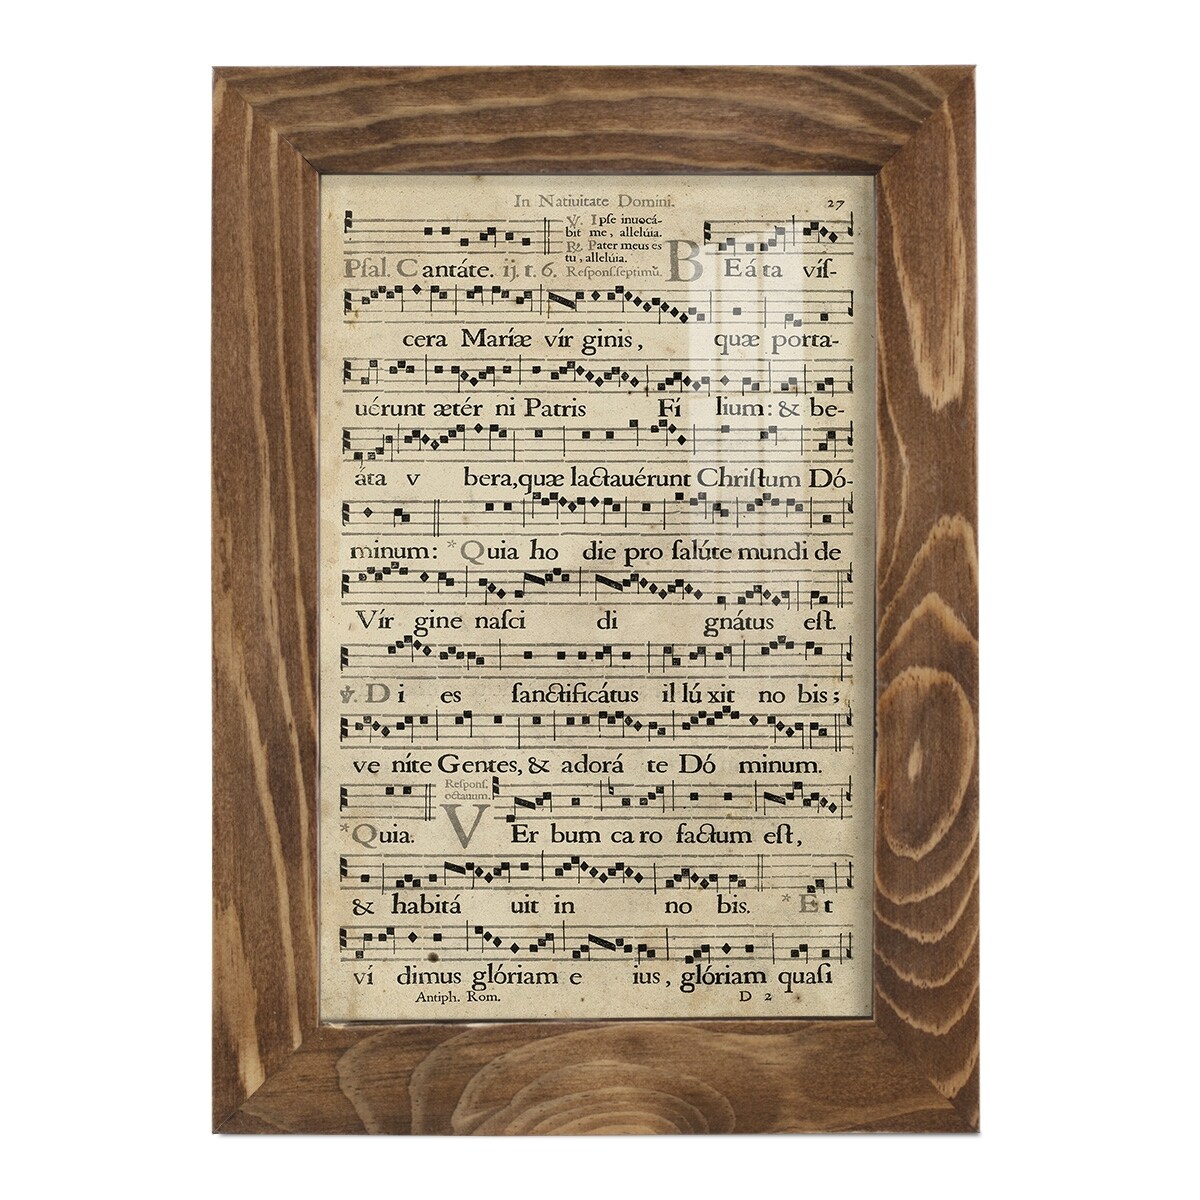 In Natiuitate Domini. 27
℣. Ipse inuocá-
bit me, allelúia.
℟. Pater meus es
tu, allelúia.
Pſal. Cantáte. ij. t. 6. Reſponſ. ſeptimū. BEáta víſ-
cera Maríæ vír ginis, quæ porta-
uérunt ætér ni Patris Fí lium: & be-
áta v bera, quæ lactauérunt Chriſtum Dó-
minum: *Quia ho die pro ſalúte mundi de
Vír gine naſci di gnátus eſt.
℣. Di es ſanctificátus il lú xit no bis;
ve níte Gentes, & adorá te Dó minum.
Reſponſ.
octauum.
*Quia. VEr bum ca ro factum eſt,
& habitá uit in no bis. *Et
ví dimus glóriam e ius, glóriam quaſi
Antiph. Rom. D 2